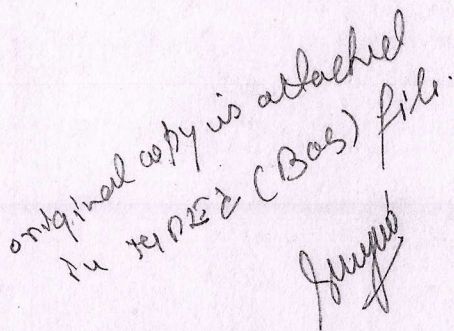 original copy is attached
in (BOS) file.